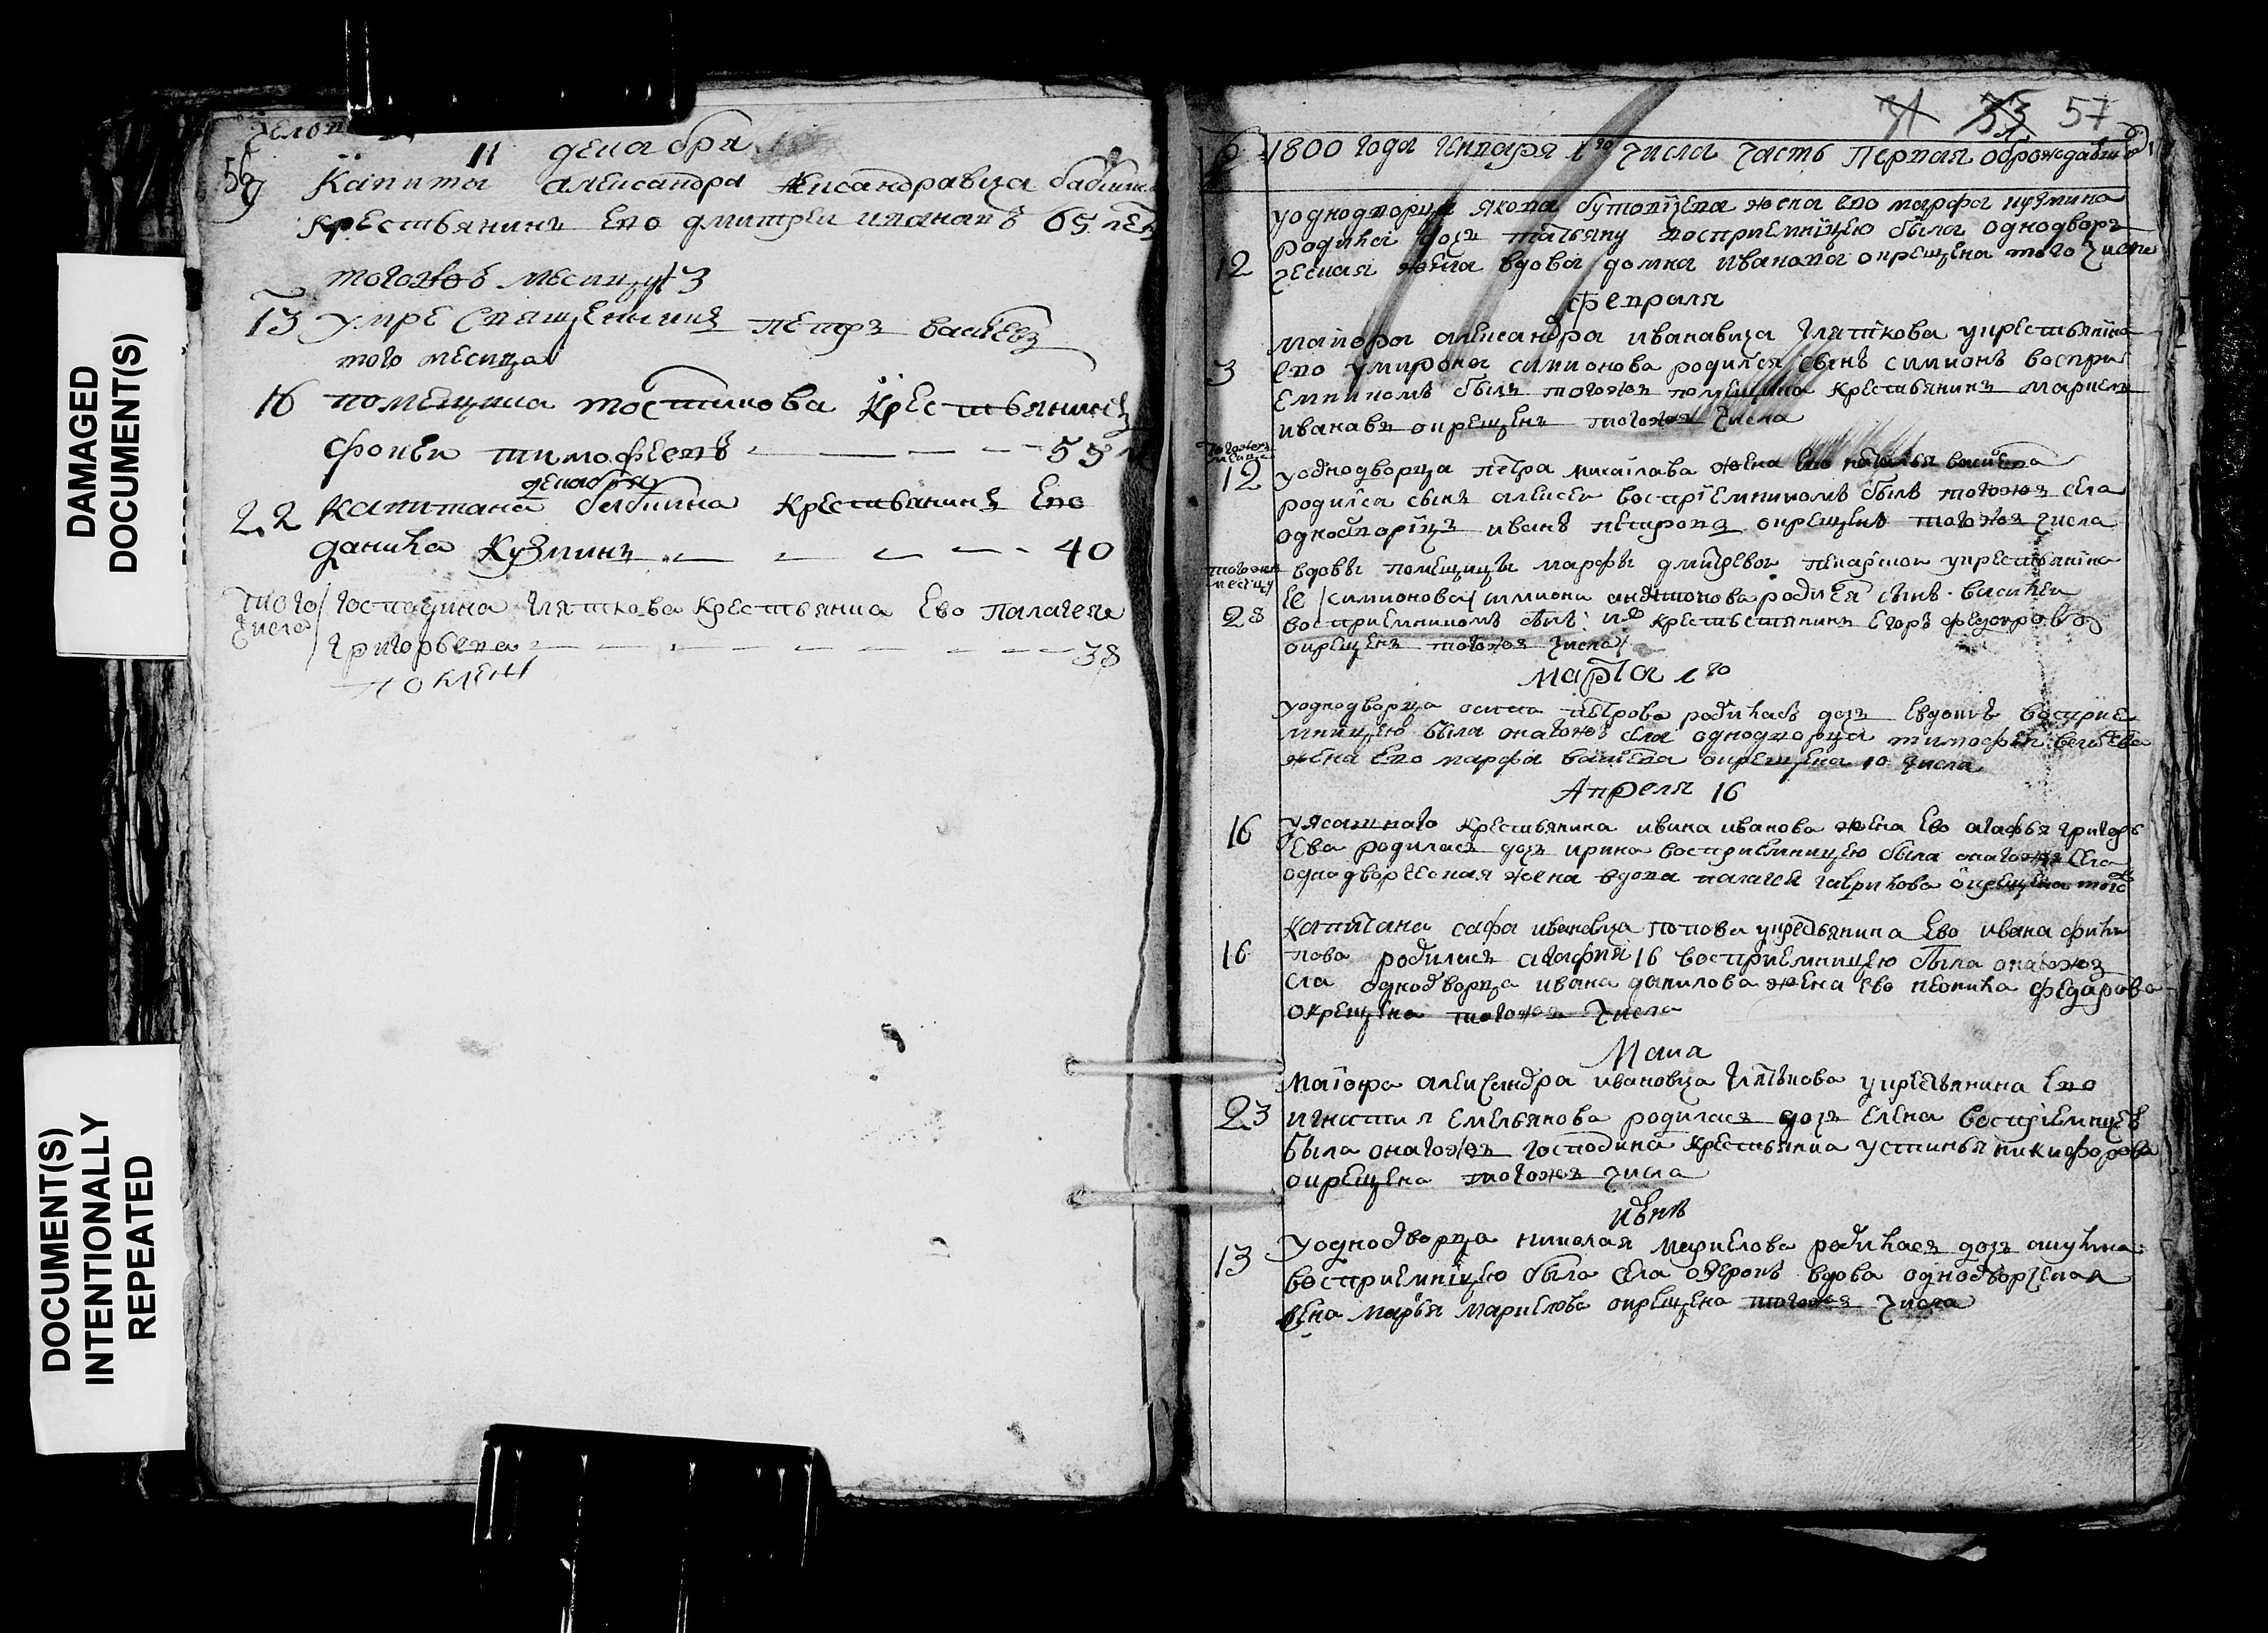 DAMAGED
DOCUMENT(S)
DOCUMENT(S)
INTENTIONALLY
REPEATED
11 декабря
56
9 Капита александра бабкина
крестьянинъ ево дмитреи ивановъ 65 лет
тогожъ месица
13 умре священникъ петръ васи́евъ
того месица
16 помещика толстикова крестьянинъ
фокеи тимофеевъ 55
декабря
22 капитана бабкина крестьянинъ ево
данила кузминъ 40
того числа господина глаткова крестьянка ево палагея
григорьева 38
31 33 57
1800 года генваря 1го числа часть первая о рождавши
у однодворца якова жена ево марфа кузмина
родила дочь татьяну восприемницею была однодвор
12 ческая жена вдова домна иванова окрещена того числа
февраля
маиора александра иванавича глаткова у крестьянина
3 ево мирона симионова родился сынъ симионъ воспри
емникомъ былъ тогожъ помещика крестьянинъ маркелъ
иванавъ окрещенъ тогожъ числа
тогожъ месица
12 у однодворца петра михаилава жена ево наталья васи́ева
родился сынъ алексеи восприемникомъ былъ тогожъ села
однодворецъ иванъ петровъ окрещенъ тогожъ числа
тогожъ месяцу
вдовы помещицы марфы дмитревои у крестьянина
ее симионова родился сынъ василеи
28 восприемникомъ былъ крестьянинъ егоръ федоровъ
окрещенъ тогожъ числа
марта 1го
у однодворца осипа петрова родилась дочь евдокия восприе
мницею была онагожъ села однодворца тимофея
жена ево марфа васи́ева окрещена 10 числа
Апреля 16
16 у ясашнаго крестьянина иванова жена ево агафья григорь
ева родилась дочь ирина восприемницею была онагожъ села
однодворческая жена вдова палагея гаврилова окрещена того
капитана иванавича попова у крестьянина ево ивана фили
16 пова родилась агафия 16 восприемницею была онагожъ
села однодворца ивана данилова жена ево федарова
окрещена тогожъ числа
маиа
маиора александра ивановича глаткова у крестьянина ево
23 игнатия емельянова родилась дочь елена восприемницеъ
была онагожъ господина крестьянка устинья никифорова
окрещена тогожъ числа
июнъ
13 у однодворца николая маркелова родилась дочь акулина
восприемницею была села вдова однодворческая
жена марья маркелова окрещена тогожъ числа